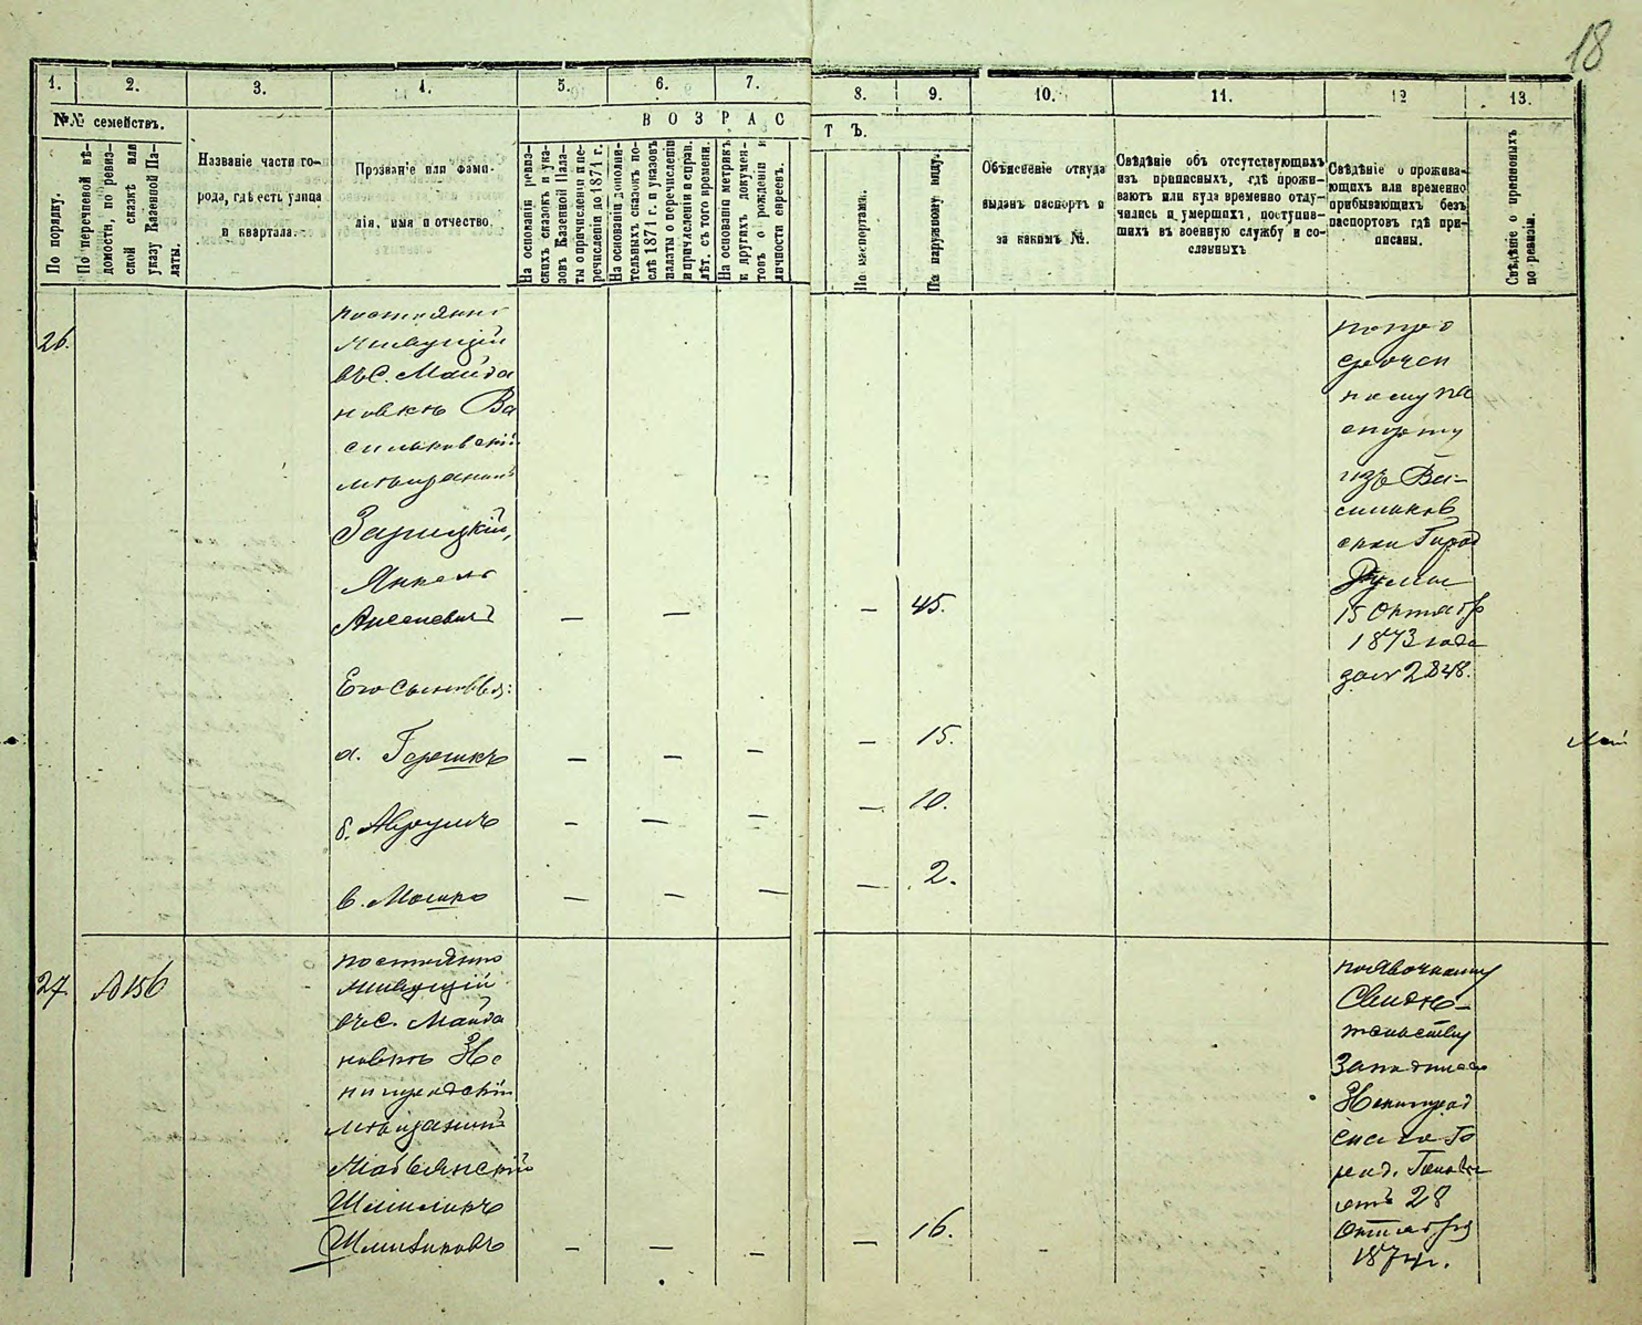 18
1. 2. 3. 4. 5. 6. 7. 8. 9. 10. 11. 12 13.
№№ семействъ.
ВОЗРАСТЪ.
По порядку.
По перечневой вѣ-
домости, по ревиз-
ской сказкѣ или
указу Казенной Па-
латы.
Названіе части го-
рода, гдѣ есть улица
и квартала.
Прозваніе или фами-
лія, имя и отчество.
На основаніи ревиз-
скихъ сказокъ и ука-
зовъ Казенной Пала-
ты о причисленіи и пе-
речисленіи до 1871 г.
На основаніи дополни-
тельныхъ сказокъ по-
слѣ 1871 г. и указовъ
палаты о перечисленіи
и причисленіи и справ.
лѣт. съ того времени.
На основаніи метрикъ
и другихъ докумен-
товъ о рожденіи и
личности евреевъ.
По паспортамъ.
По наружному виду.
Объясненіе откуда
выданъ паспортъ и
за какимъ №.
Свѣдѣніе объ отсутствующихъ
изъ приписныхъ, гдѣ прожи-
ваютъ или куда временно отлу-
чились и умершихъ, поступив-
шихъ въ военную службу и со-
сланныхъ
Свѣдѣніе о прожива-
ющихъ или временно
прибывающихъ безъ
паспортовъ гдѣ при-
писаны.
Свѣдѣніе о приписныхъ
по ревизіи.
26.
постоянно
живущій
въ с. Майда
новкѣ Ва
сильковскій
мѣщанинъ
Зарицкій,
Янкель
— — — 45.
Его сыновья:
а. Гершкъ — — — — 15.
б. Аврумъ — — — — 10.
в. Мошко — — — — 2.
по про
срочен
ному па
спорту
изъ Ва-
сильков
ской Город
Думы
15 Октябр
1873 года
за № 2848.
27. № 156
постоянно
живущій
въ с. Майда
новкѣ Зве
нигородскій
мѣщанинъ
Шмиликъ
— — — — 16.
по явочному
Свидѣ-
тельству
Звенигород
скаго Го
отъ 28
Октября
1874 г.